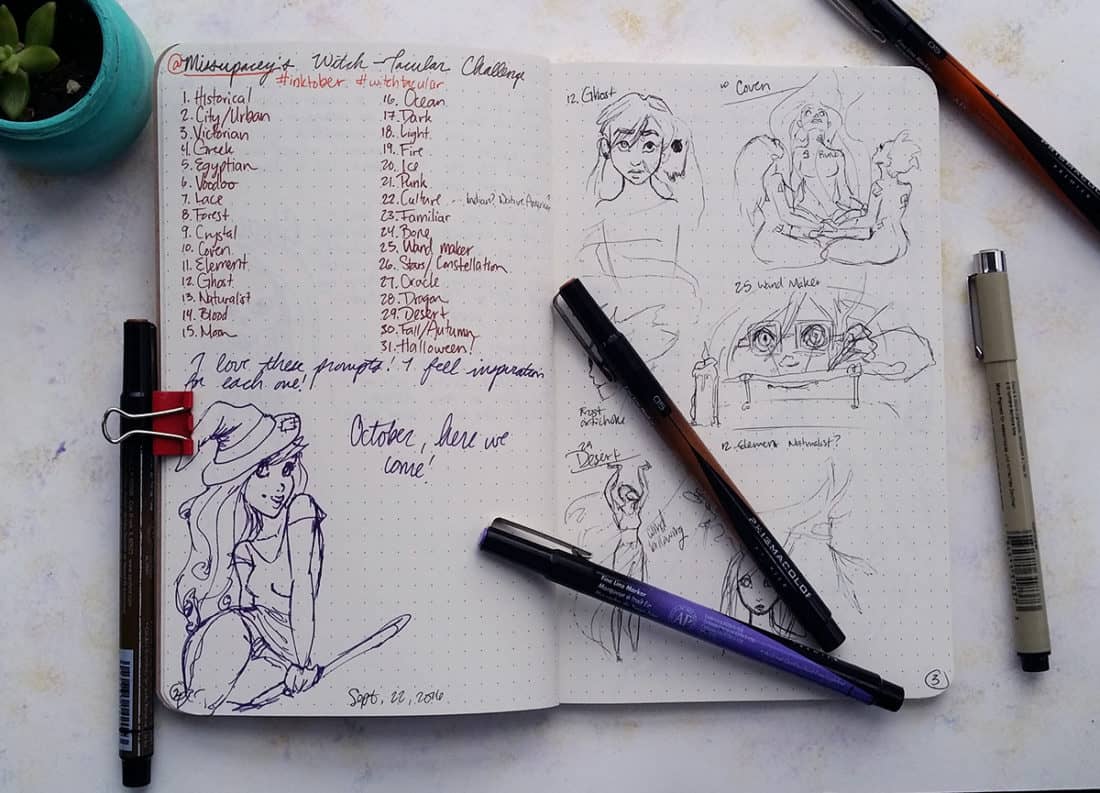 @Missupacey's Witch-Tacular Challenge
#inktober #witchtacular
1. Historical
2. City/Urban
3. Victorian
4. Greek
5. Egyptian
6. Voodoo
7. Lace
8. Forest
9. Crystal
10. Coven
11. Element
12. Ghost
13. Naturalist
14. Blood
15. Moon
16. Ocean
17. Dark
18. Light
19. Fire
20. Ice
21. Punk
22. Culture ... Indian? Native American?
23. Familiar
24. Bone
25. Wand maker
26. Stars/Constellation
27. Oracle
28. Dragon
29. Desert
30. Fall/Autumn
31. Halloween!
I love these prompts! I feel inspiration
for each one!
October, here we
come!
Sept. 22, 2016
2
12. Ghost
10 Coven
25. Wand Maker
artichoke
29
Desert
12. Element Naturalist?
3
PRISMACOLOR
05
05
Fine Line Marker
AP